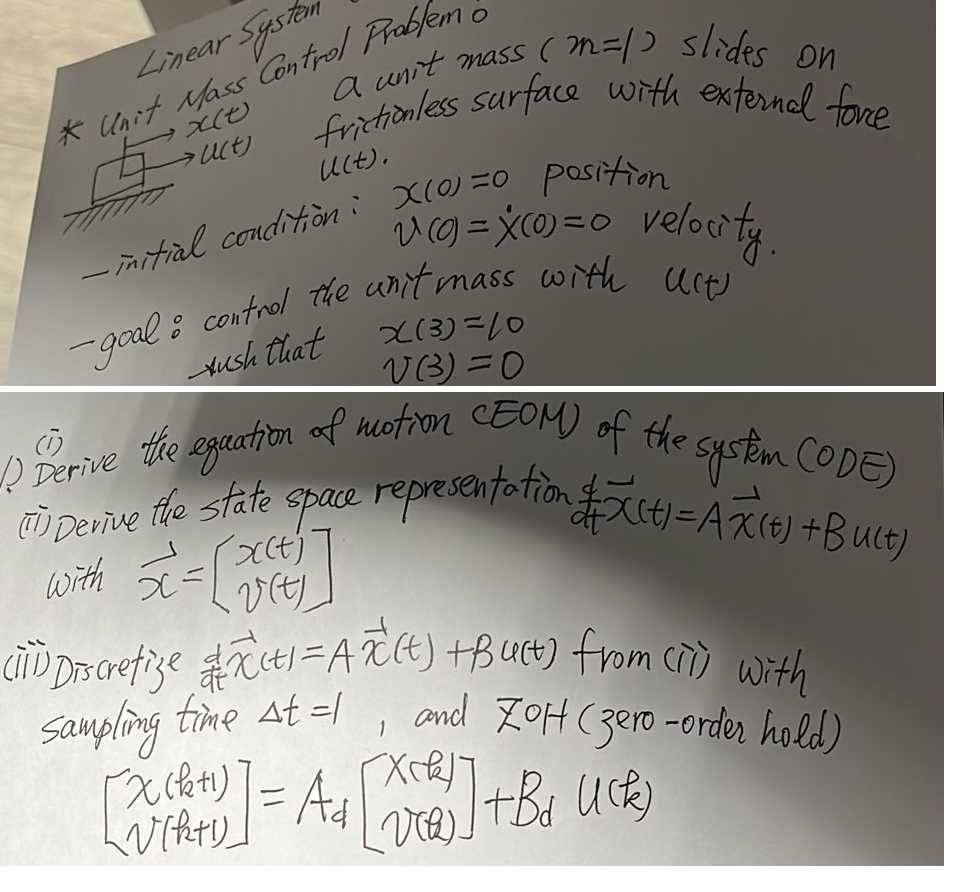 Linear System
* Unit Mass Control Problem:
x(t)
u(t)
a unit mass (m=1) slides on
frictionless surface with external force
u(t).
- initial condition: x(0)=0 position
v(0)=ẋ(0)=0 velocity.
- goal: control the unit mass with u(t)
sush that x(3)=10
v(3)=0
1.) (i) Derive the equation of motion (EOM) of the system (ODE)
(ii) Derive the state space representation d/dt x⃗(t)=Ax⃗(t)+Bu(t)
with x⃗=[x(t)
v(t)]
(iii) Discretize d/dt x⃗(t)=Ax⃗(t)+Bu(t) from (ii) with
sampling time Δt=1, and ZOH (zero-order hold)
[x(k+1)
v(k+1)]=A_d[x(k)
v(k)]+B_d u(k)